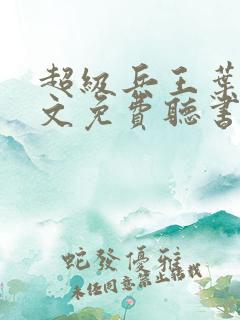 超級兵王葉
文免費聽書
蛇發優雅
未经同意禁止转载